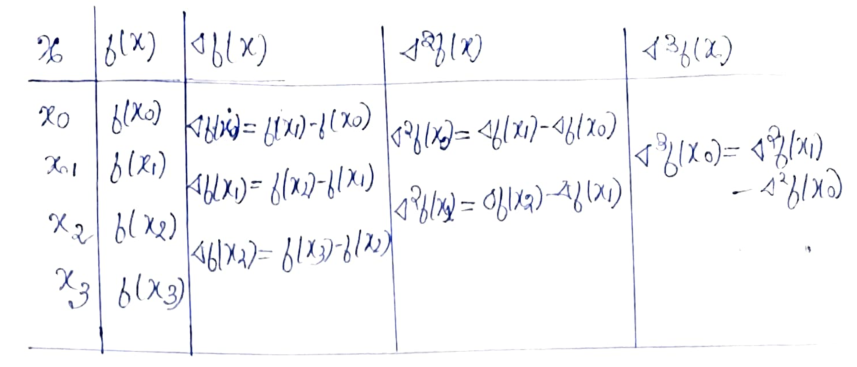 x f(x) Δf(x) Δ²f(x) Δ³f(x)
x₀ f(x₀) Δf(x₀) = f(x₁)-f(x₀) Δ²f(x₀) = Δf(x₁)-Δf(x₀)
Δ³f(x₀) = Δ²f(x₁)
- Δ²f(x₀)
x₁ f(x₁) Δf(x₁) = f(x₂)-f(x₁) Δ²f(x₁) = Δf(x₂)-Δf(x₁)
x₂ f(x₂) Δf(x₂) = f(x₃)-f(x₂)
x₃ f(x₃)